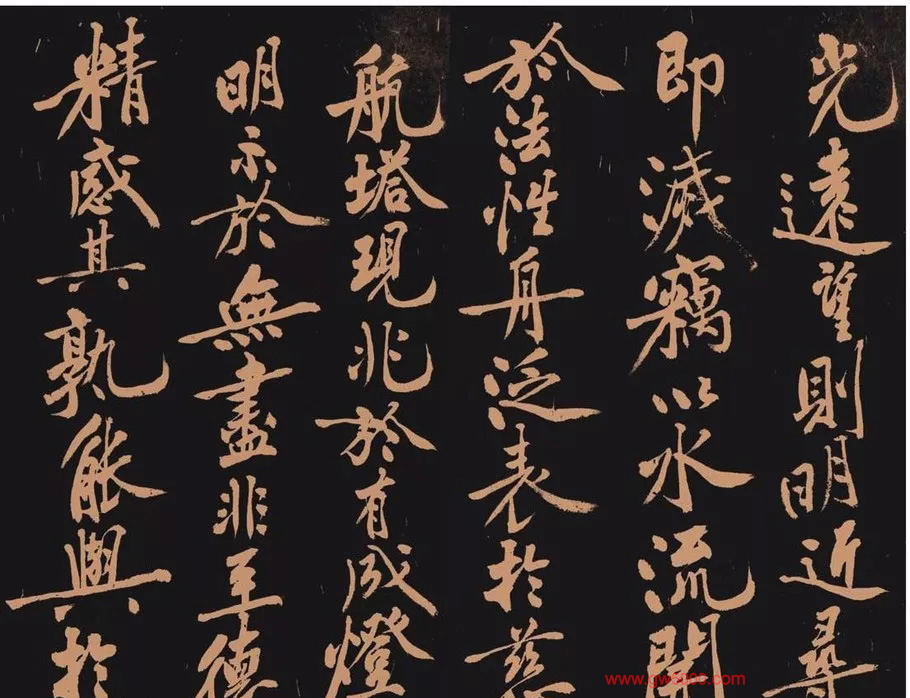 光遠望則明近尋
即滅竊以水流開
於法性舟泛表於慈
航塔現兆於有成燈
明示於無盡非至德
精感其孰能與於
www.gw